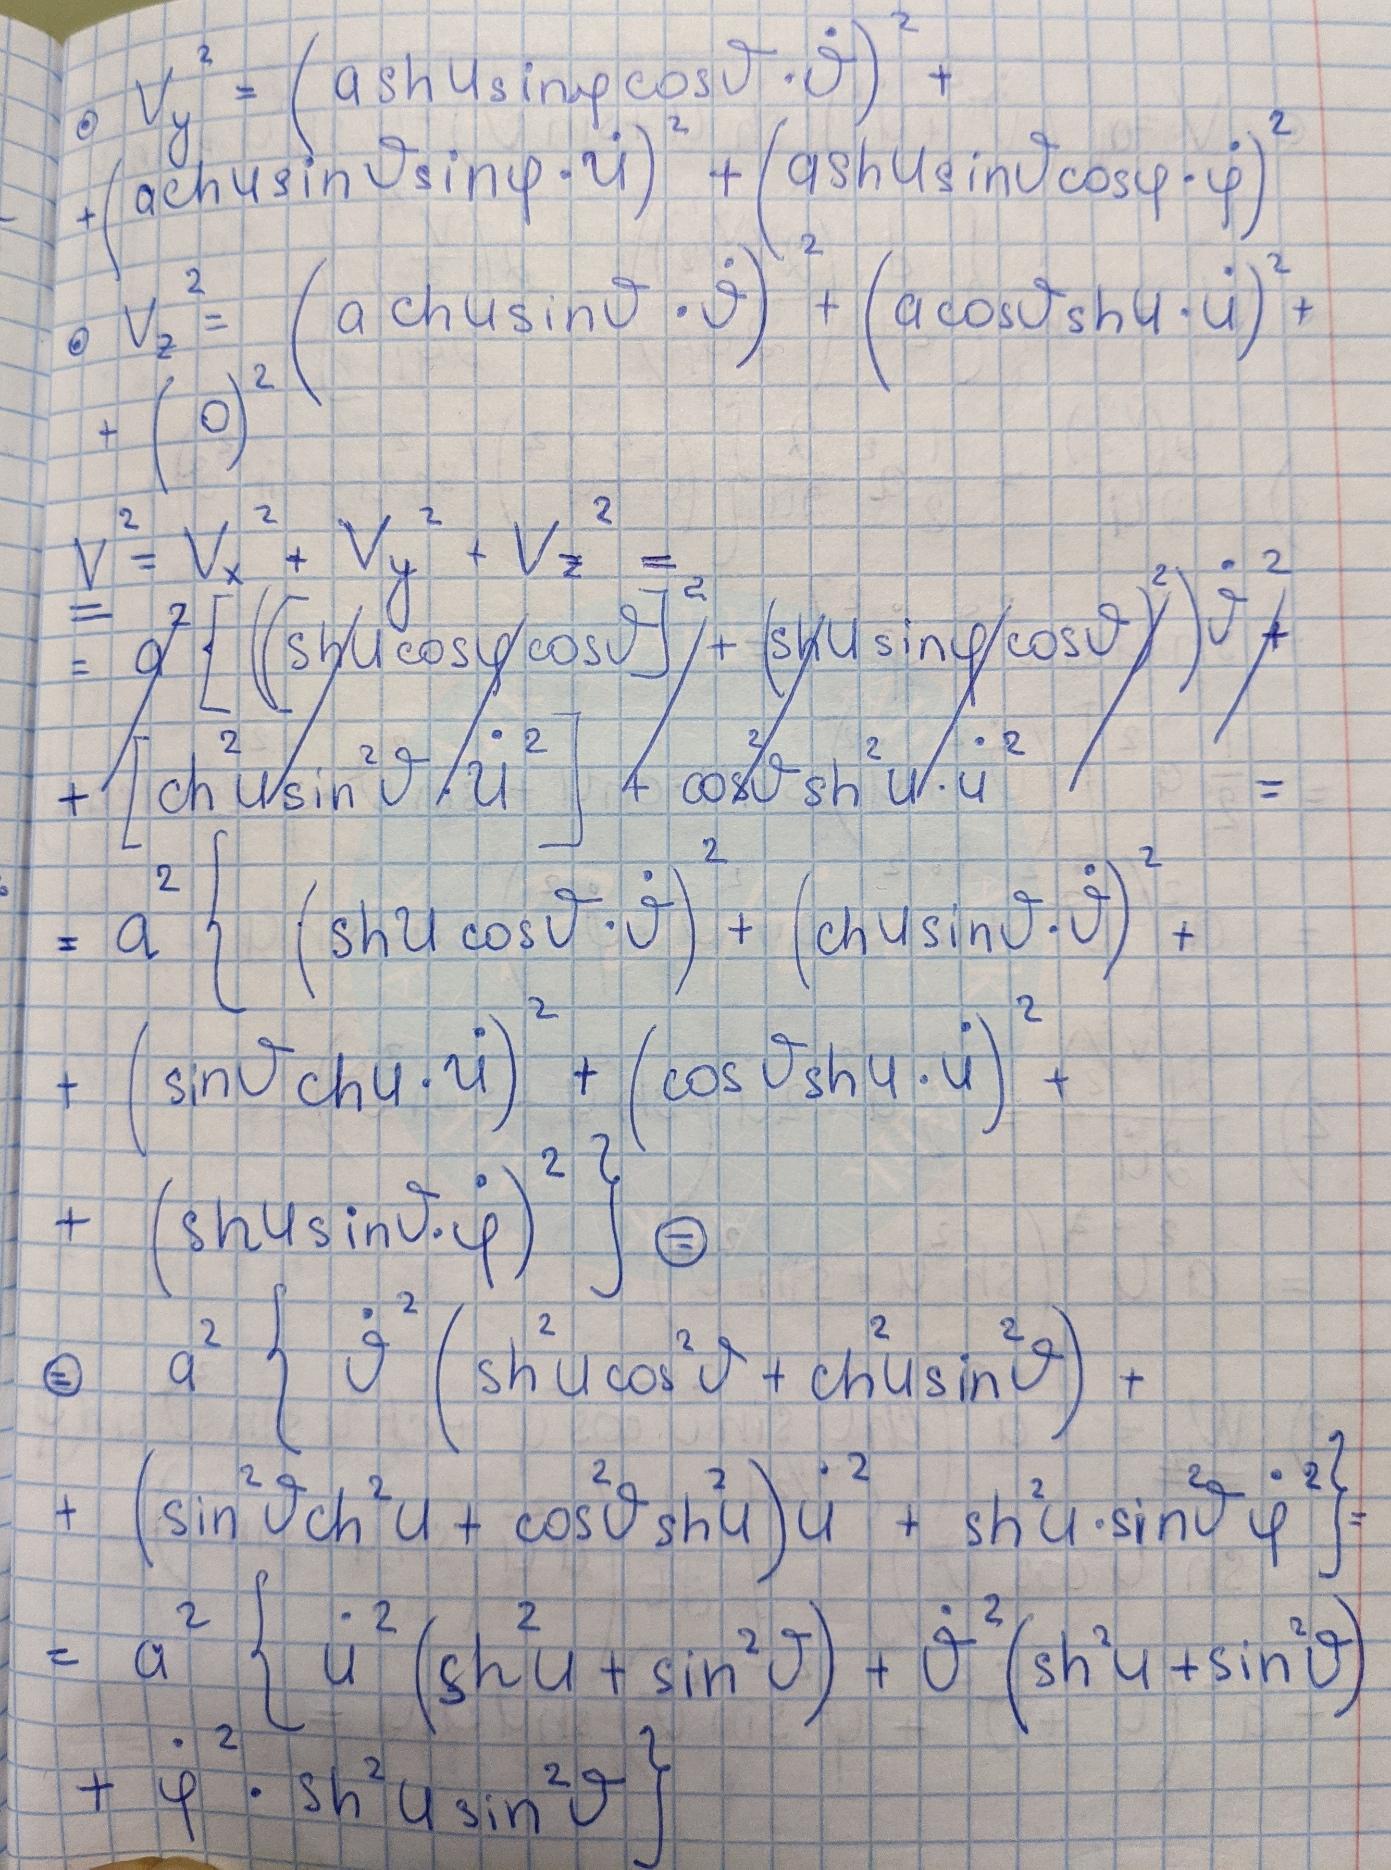 ⊙ V_y² = (a sh u sinφ cosϑ · ϑ̇)² +
+ (a ch u sinϑ sinφ · u̇)² + (a sh u sinϑ cosφ · φ̇)²
⊙ V_z² = (a ch u sinϑ · ϑ̇)² + (a cosϑ sh u · u̇)² +
+ (0)²
V² = V_x² + V_y² + V_z² =
= a² [ ([sh u cosφ cosϑ]² + (sh u sinφ cosϑ)²) ϑ̇² +
+ [ch² u sin²ϑ · u̇²] + cos²ϑ sh² u · u̇² =
= a² { (sh u cosϑ · ϑ̇)² + (ch u sinϑ · ϑ̇)² +
+ (sinϑ ch u · u̇)² + (cosϑ sh u · u̇)² +
+ (sh u sinϑ · φ̇)² } ⊜
⊜ a² { ϑ̇² (sh² u cos²ϑ + ch² u sin²ϑ) +
+ (sin²ϑ ch² u + cos²ϑ sh² u) u̇² + sh² u · sin²ϑ φ̇² } =
= a² { u̇² (sh² u + sin²ϑ) + ϑ̇² (sh² u + sin²ϑ)
+ φ̇² · sh² u sin²ϑ }